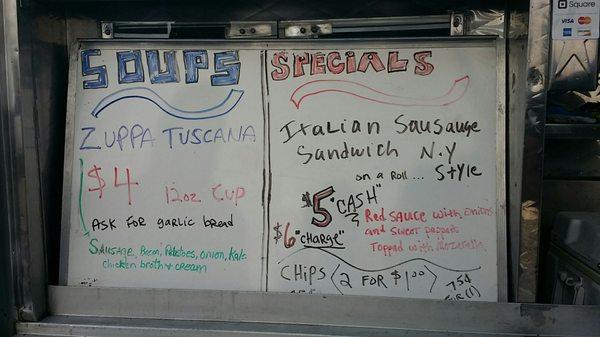 Square
VISA
SOUPS
ZUPPA TUSCANA
$4 12oz CUP
ASK FOR garlic bread
SAUSAGE, Bacon, Potatoes, onion, Kale
chicken broth + cream
SPECIALS
Italian Sausauge
Sandwich N.Y
on a Roll... Style
$5 "CASH"
$6 "CHARGE"
Red sauce with onions
and sweet peppers
Topped with mozarella
CHIPS 2 FOR $1.00
75¢